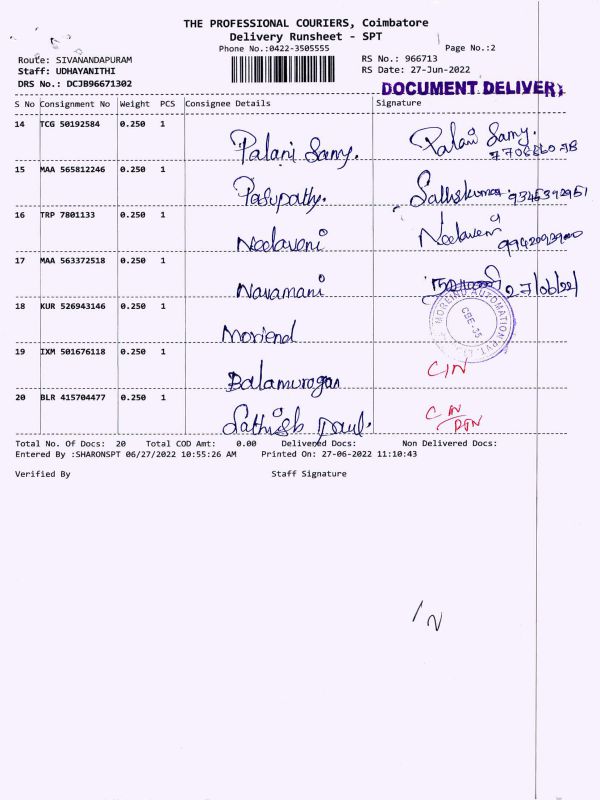 THE PROFESSIONAL COURIERS, Coimbatore
Delivery Runsheet - SPT
Phone No.:0422-3505555
Page No.:2
Route: SIVANANDAPURAM
RS No.: 966713
Staff: UDHAYANITHI
RS Date: 27-Jun-2022
DRS No.: DCJB96671302
DOCUMENT DELIVERY
S No Consignment No Weight PCS Consignee Details Signature
14 TCG 50192584 0.250 1 Palani Samy. Palani Samy.
15 MAA 565812246 0.250 1 Pasupathy. Sathskumar 9345392951
16 TRP 7801133 0.250 1 Neelaveni Neelaveni
17 MAA 563372518 0.250 1 Navamani நவமணி 27/06/22
18 KUR 526943146 0.250 1 Moriend
MOREIND AUTOMATION PVT. LTD. CBE-35
19 IXM 501676118 0.250 1 Balamurogan C/N
20 BLR 415704477 0.250 1 Sathish Paul. C/N
Total No. Of Docs: 20 Total COD Amt: 0.00 Delivered Docs: Non Delivered Docs:
Entered By :SHARONSPT 06/27/2022 10:55:26 AM Printed On: 27-06-2022 11:10:43
Verified By Staff Signature